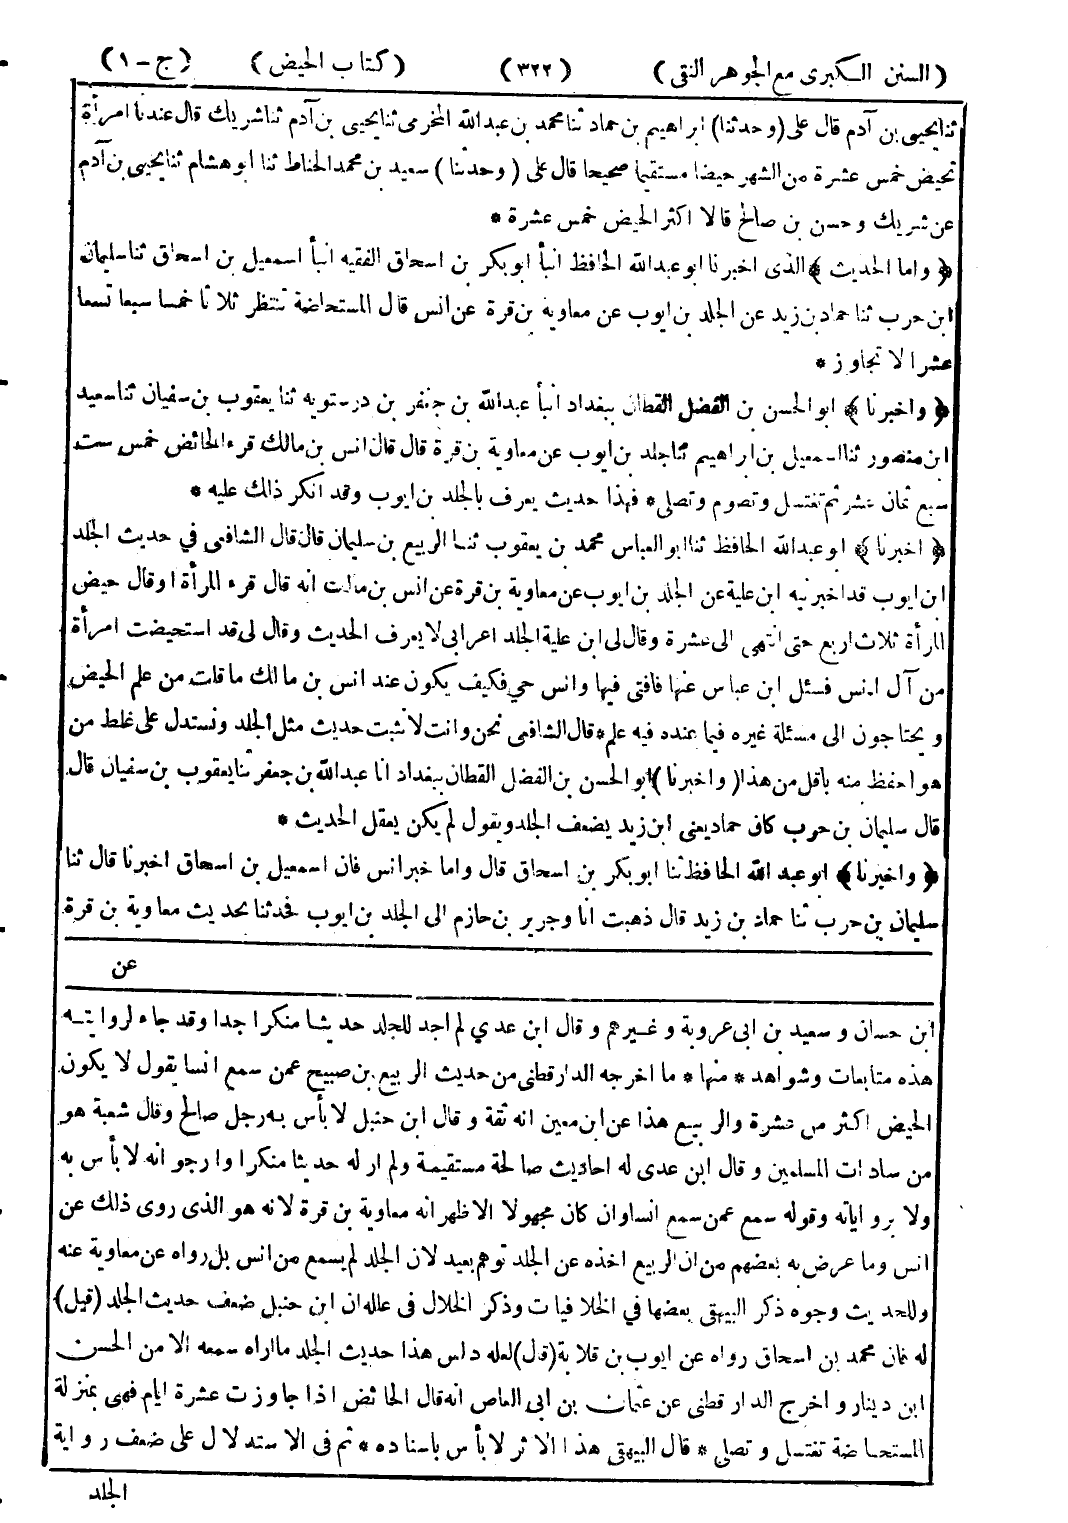 (السنن الكبرى مع الجوهر النقى) (٣٢٢) (كتاب الحيض) (ج-١)
ثنا يحيى بن آدم قال على (وحدثنا) ابراهيم بن حماد ثنا محمد بن عبد الله المخرمى ثنا يحيى بن آدم ثنا شريك قال عندنا امرأة
تحيض خمس عشرة من الشهر حيضا مستقيما صحيحا قال على (وحدثنا) سعيد بن محمد الحناط ثنا ابو هشام ثنا يحيى بن آدم
عن شريك وحسن بن صالح قالا اكثر الحيض خمس عشرة *
﴿واما الحديث﴾ الذى اخبرنا ابو عبد الله الحافظ انبأ ابو بكر بن اسحاق الفقيه انبأ اسمعيل بن اسحاق ثنا سليمان
ابن حرب ثنا حماد بن زيد عن الجلد بن ايوب عن معاوية بن قرة عن انس قال المستحاضة تنتظر ثلاثا خمسا سبعا تسعا
عشرا لا تجاوز *
﴿واخبرنا﴾ ابو الحسن بن الفضل القطان ببغداد انبأ عبد الله بن جعفر بن درستويه ثنا يعقوب بن سفيان ثنا سعيد
ابن منصور ثنا اسمعيل بن ابراهيم ثنا جلد بن ايوب عن معاوية بن قرة قال قال انس بن مالك قرء الحائض خمس ست
سبع ثمان عشر ثم تغتسل وتصوم وتصلى * فهذا حديث يعرف بالجلد بن ايوب وقد انكر ذلك عليه *
﴿اخبرنا﴾ ابو عبد الله الحافظ ثنا ابو العباس محمد بن يعقوب ثنا الربيع بن سليمان قال قال الشافعى في حديث الجلد
ابن ايوب قد اخبرنيه ابن علية عن الجلد بن ايوب عن معاوية بن قرة عن انس بن مالك انه قال قرء المرأة او قال حيض
المرأة ثلاث اربع حتى انتهى الى عشرة وقال لى ابن علية الجلد اعرابى لا يعرف الحديث وقال لى قد استحيضت امرأة
من آل انس فسئل ابن عباس عنها فافتى فيها وانس حي فكيف يكون عند انس بن مالك ما قلت من علم الحيض
ويحتاجون الى مسئلة غيره فيما عنده فيه علم * قال الشافعى نحن وانت لا نثبت حديث مثل الجلد ونستدل على غلط من
هو احفظ منه باقل من هذا (واخبرنا) ابو الحسن بن الفضل القطان ببغداد انا عبد الله بن جعفر ثنا يعقوب بن سفيان قال
قال سليمان بن حرب كان حماد يعنى ابن زيد يضعف الجلد ويقول لم يكن يعقل الحديث *
﴿واخبرنا﴾ ابو عبد الله الحافظ ثنا ابو بكر بن اسحاق قال واما خبر انس فان اسمعيل بن اسحاق اخبرنا قال ثنا
سليمان بن حرب ثنا حماد بن زيد قال ذهبت انا وجرير بن حازم الى الجلد بن ايوب فحدثنا بحديث معاوية بن قرة
عن
ابن حسان وسعيد بن ابى عروبة وغيرهم وقال ابن عدي لم اجد للجلد حديثا منكرا جدا وقد جاء لروايته
هذه متابعات وشواهد * منها * ما اخرجه الدار قطنى من حديث الربيع بن صبيح عمن سمع انسا يقول لا يكون
الحيض اكثر من عشرة والربيع هذا عن ابن معين انه ثقة وقال ابن حنبل لا بأس به رجل صالح وقال شعبة هو
من سادات المسلمين وقال ابن عدى له احاديث صالحة مستقيمة ولم ار له حديثا منكرا وارجو انه لا بأس به
ولا بروایاته وقوله سمع عمن سمع انسا وان كان مجهولا الا ظهر انه معاوية بن قرة لانه هو الذى روى ذلك عن
انس وما عرض به بعضهم من ان الربيع اخذه عن الجلد توهم بعيد لان الجلد لم يسمع من انس بل رواه عن معاوية عنه
وللحديث وجوه ذكر البيهقى بعضها في الخلافيات وذكر الخلال فى علله ان ابن حنبل ضعف حديث الجلد (قيل)
له فان محمد بن اسحاق رواه عن ايوب بن قلابة (قال) لعله دلس هذا حديث الجلد ما اراه سمعه الا من الحسن
ابن دينار واخرج الدار قطنى عن عثمان بن ابى العاص انه قال الحائض اذا جاوزت عشرة ايام فهى بمنزلة
المستحاضة تغتسل وتصلى * قال البيهقى هذا الاثر لا بأس باسناده * ثم فى الاستدلال على ضعف رواية
الجلد